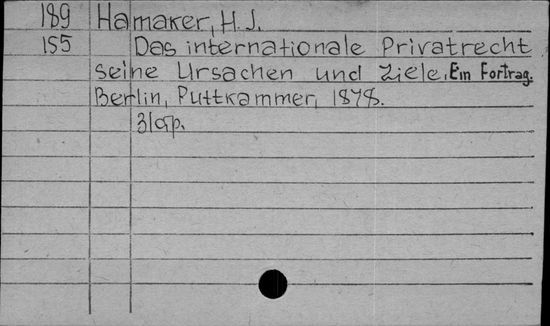 189 Hamaker, H. J.
155 Das internationale Privatrecht
seine Ursachen und Ziele. Ein Fortrag.
Berlin, Puttkammer, 1878.